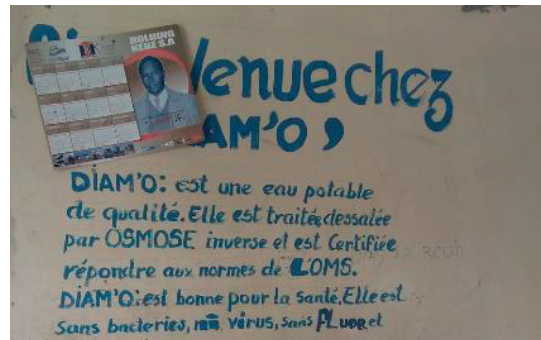 HOLDING
KEBE S.A
venue chez
AM'O,
DIAM'O: est une eau potable
de qualité. Elle est traitée dessalée
par OSMOSE inverse et est Certifiée
répondre aux normes de L'OMS.
DIAM'O: est bonne pour la santé. Elle est
Sans bacteries, ni vérus, sans FLUOR et